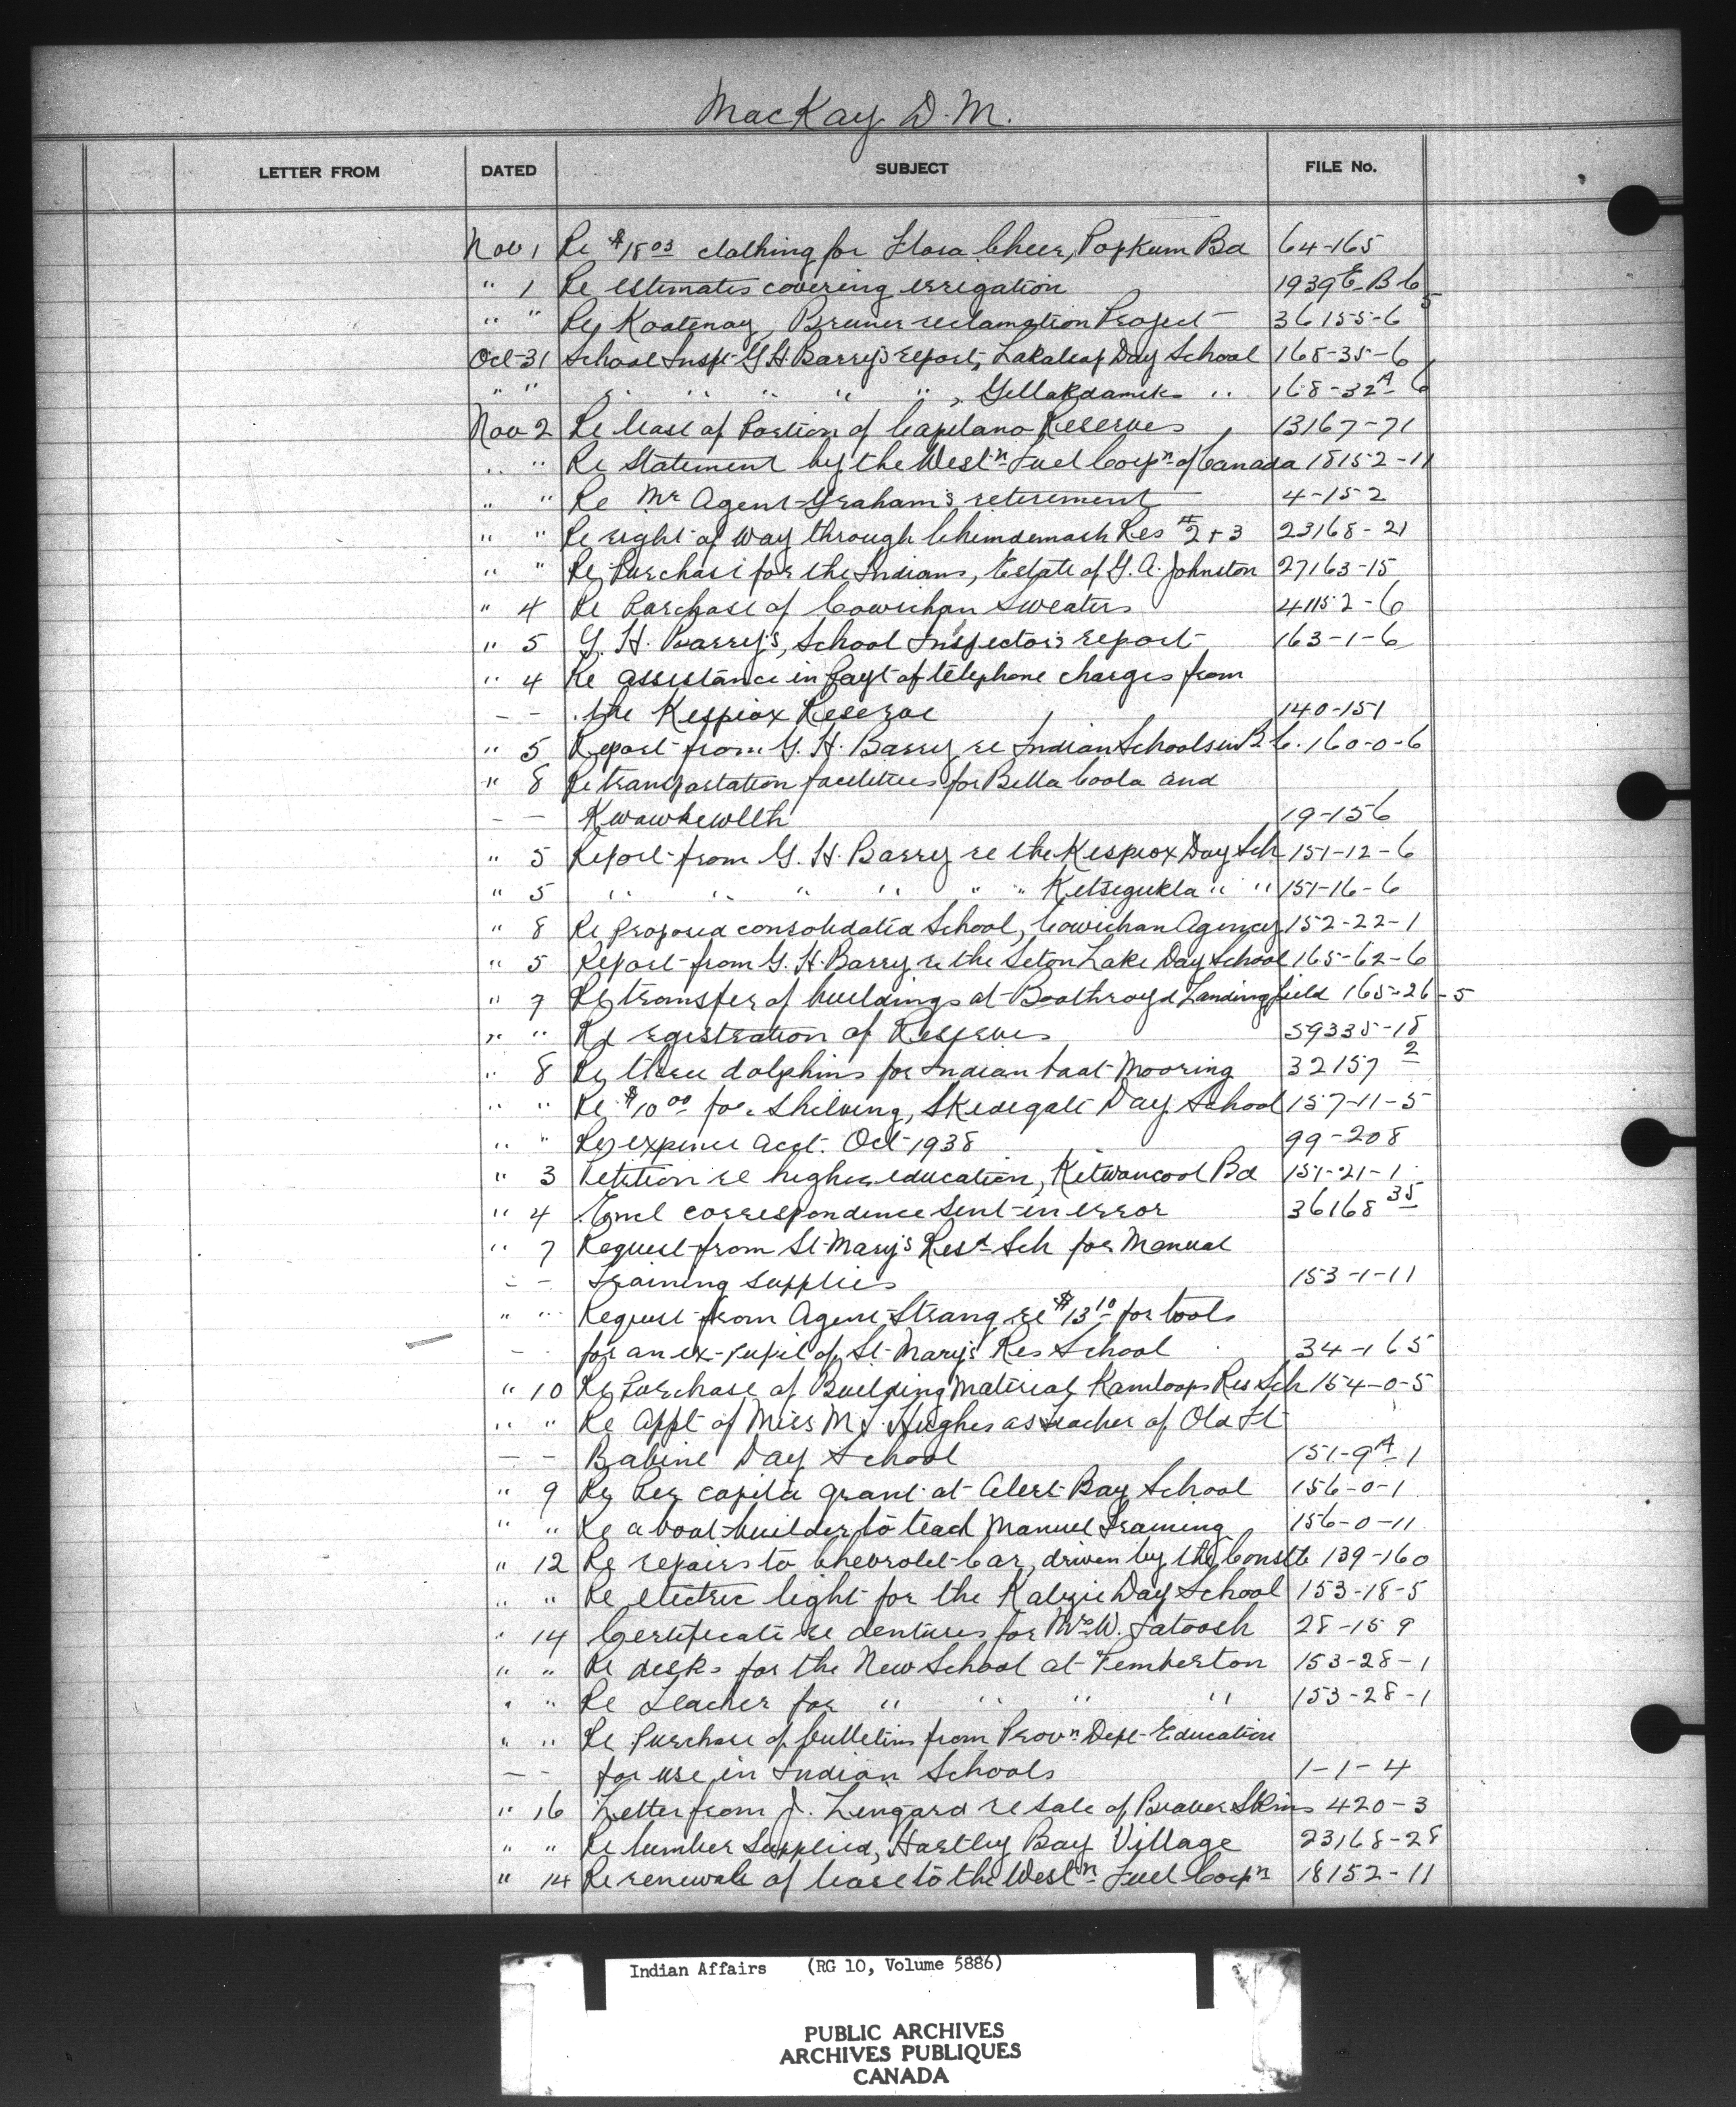 MacKay D. M.
LETTER FROM DATED SUBJECT FILE No.
Nov 1 Re $18.03 clothing for Flora Cheer, Popkum Bd 64-165
" 1 Re estimates covering irrigation 1939 E-B.C.
" " Re Kootenay, Bremer reclamation Project 36155-6
Oct 31 School Inspt G H Barry's report, Lakalsap Day School 168-35-6
" " " " " " " , Gillakdamik " 168-32A-6
Nov 2 Re lease of Portion of Capilano Reserves 13167-71
" " Re Statement by the Westn Fuel Corpn of Canada 18152-11
" " Re Mr Agent Graham's retirement 4-152
" " Re right of way through Chimdemash Res #2+3 23168-21
" " Re Purchase for the Indians, Estate of G. A. Johnston 27163-15
" 4 Re Purchase of Cowichan Sweaters 41152-6
" 5 G. H. Barry's, School Inspector's report 163-1-6
" 4 Re assistance in payt of telephone charges from
- - the Kispiox Reserve 140-151
" 5 Report from G. H. Barry re Indian Schools in B.C. 160-0-6
" 8 Re transportation facilities for Bella Coola and
- - Kwawkewlth 19-156
" 5 Report from G. H. Barry re the Kispiox Day Sch 151-12-6
" 5 " " " " " " Kitsegukla " " 151-16-6
" 8 Re proposed consolidated School, Cowichan Agency 152-22-1
" 5 Report from G. H. Barry re the Seton Lake Day School 165-62-6
" 7 Re transfer of buildings at Boothroyd Landing field 165-26-5
" " Re registration of Reserves 59335-18
" 8 Re three dolphins for Indian boat Mooring 32157 2
" " Re $10.00 for Shelving, Skidegate Day School 157-11-5
" " Re expense acct. Oct 1938 99-208
" 3 Petition re higher education, Kitwancool Bd 151-21-1
" 4 Encl correspondence sent in error 36168 35
" 7 Request from St Mary's Resd Sch for Manual
- - Training supplies 153-1-11
" " Request from Agent Strang re $13.10 for tools
- - for an ex-pupil of St Mary's Res School 34-165
" 10 Re Purchase of Building Material Kamloops Res Sch 154-0-5
" " Re Appt of Miss M J. Hughes as teacher of Old Ft
- - Babine Day School 151-9A-1
" 9 Re Per capita grant at Alert Bay School 156-0-1
" " Re a boat-builder to teach Manuel Training 156-0-11
" 12 Re repairs to Chevrolet Car, driven by the Constb 139-160
" " Re electric light for the Katzie Day School 153-18-5
" 14 Certificate re dentures for Mrs W. Tatoosh 28-159
" " Re desks for the New School at Pemberton 153-28-1
" " Re Teacher for " " " " 153-28-1
" " Re Purchase of bulletins from Provn Dept Education
- - for use in Indian Schools 1-1-4
" 16 Letter from J. Lingard re sale of Beaver Skins 420-3
" " Re lumber supplied, Hartley Bay Village 23168-28
" 14 Re renewals of lease to the Westn Fuel Corpn 18152-11
Indian Affairs (RG 10, Volume 5886)
PUBLIC ARCHIVES
ARCHIVES PUBLIQUES
CANADA